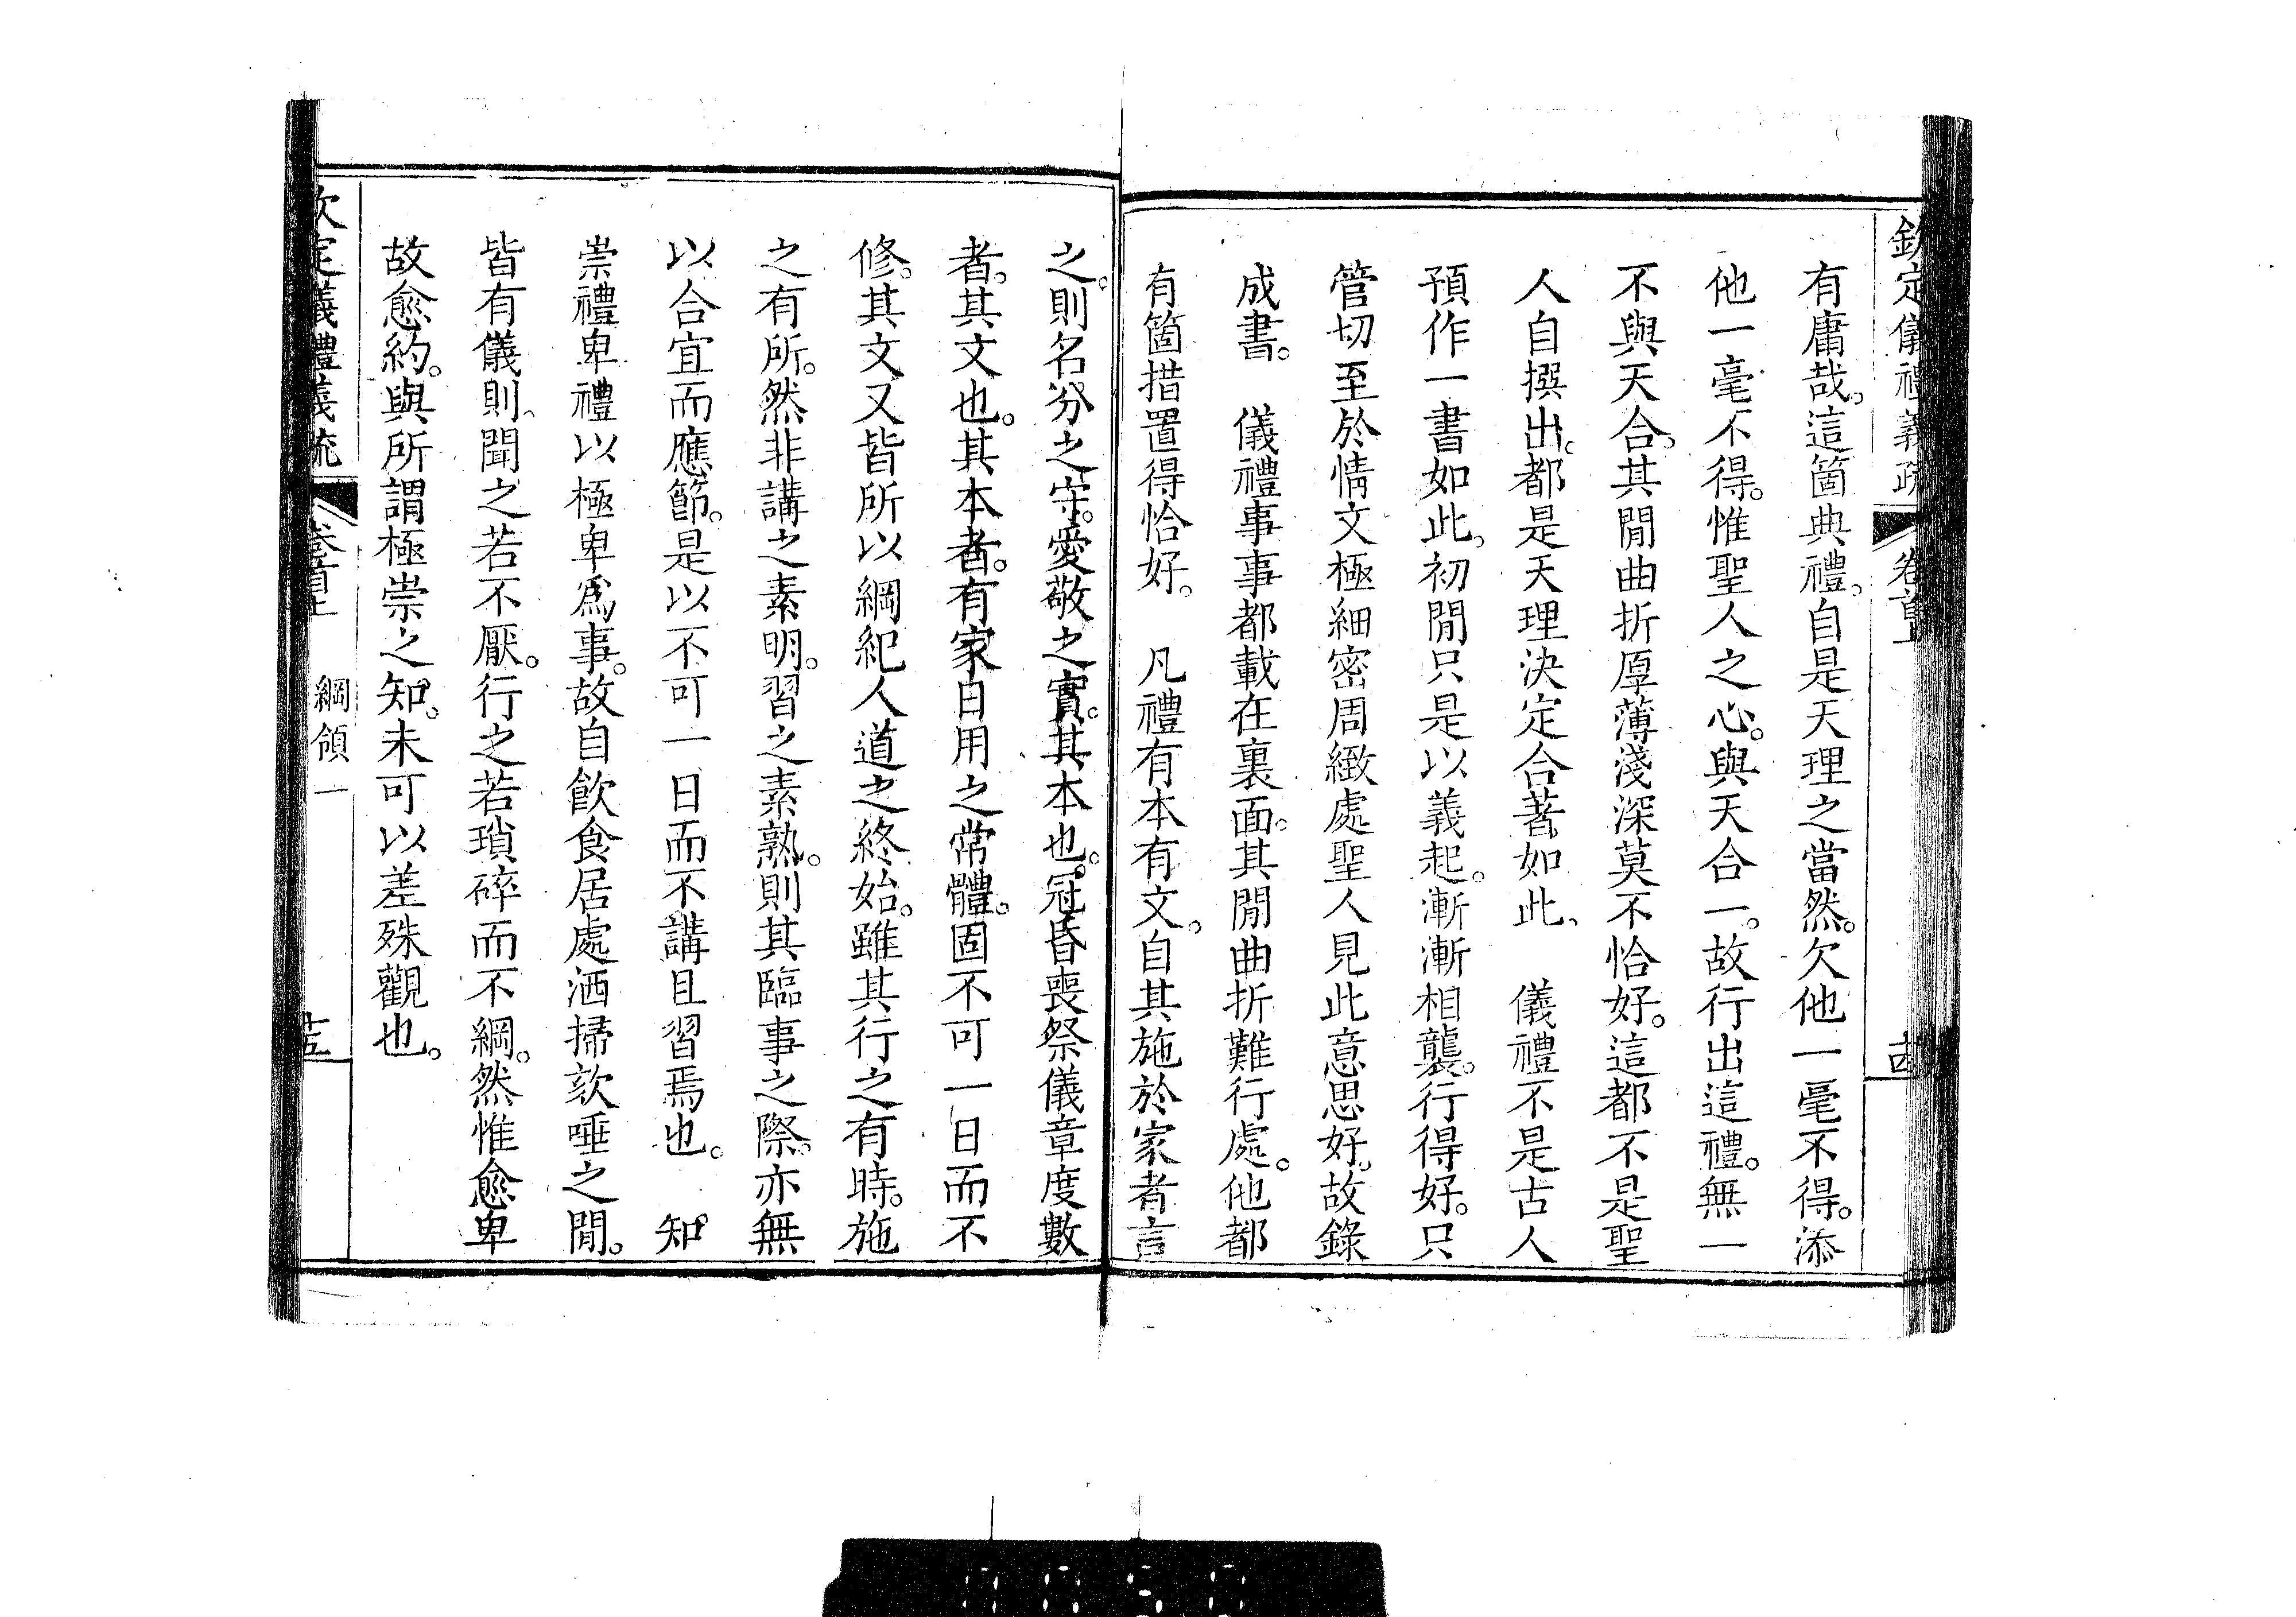 欽定儀禮義疏 卷首上 十四
有庸哉。這箇典禮。自是天理之當然。欠他一毫不得。添
他一毫不得。惟聖人之心。與天合一。故行出這禮。無一
不與天合。其閒曲折厚薄淺深莫不恰好。這都不是聖
人自撰出。都是天理決定合著如此、 儀禮不是古人
預作一書如此。初閒只是以義起。漸漸相襲。行得好。只
管切至於情文極細密周緻處聖人見此意思好。故錄
成書。 儀禮事事都載在裏面。其閒曲折難行處。他都
有箇措置得恰好。 凡禮有本有文。自其施於家者言
之。則名分之守。愛敬之實。其本也。冠昏喪祭儀章度數
者。其文也。其本者。有家日用之常體。固不可一日而不
修。其文又皆所以綱紀人道之終始。雖其行之有時。施
之有所。然非講之素明。習之素熟。則其臨事之際。亦無
以合宜而應節。是以不可一日而不講且習焉也。 知
崇禮卑禮以極卑爲事。故自飲食居處洒掃欬唾之閒。
皆有儀則。聞之若不厭。行之若瑣碎而不綱。然惟愈卑
故愈約。與所謂極崇之知。未可以差殊觀也。
欽定儀禮義疏 卷首上 綱領一 十五